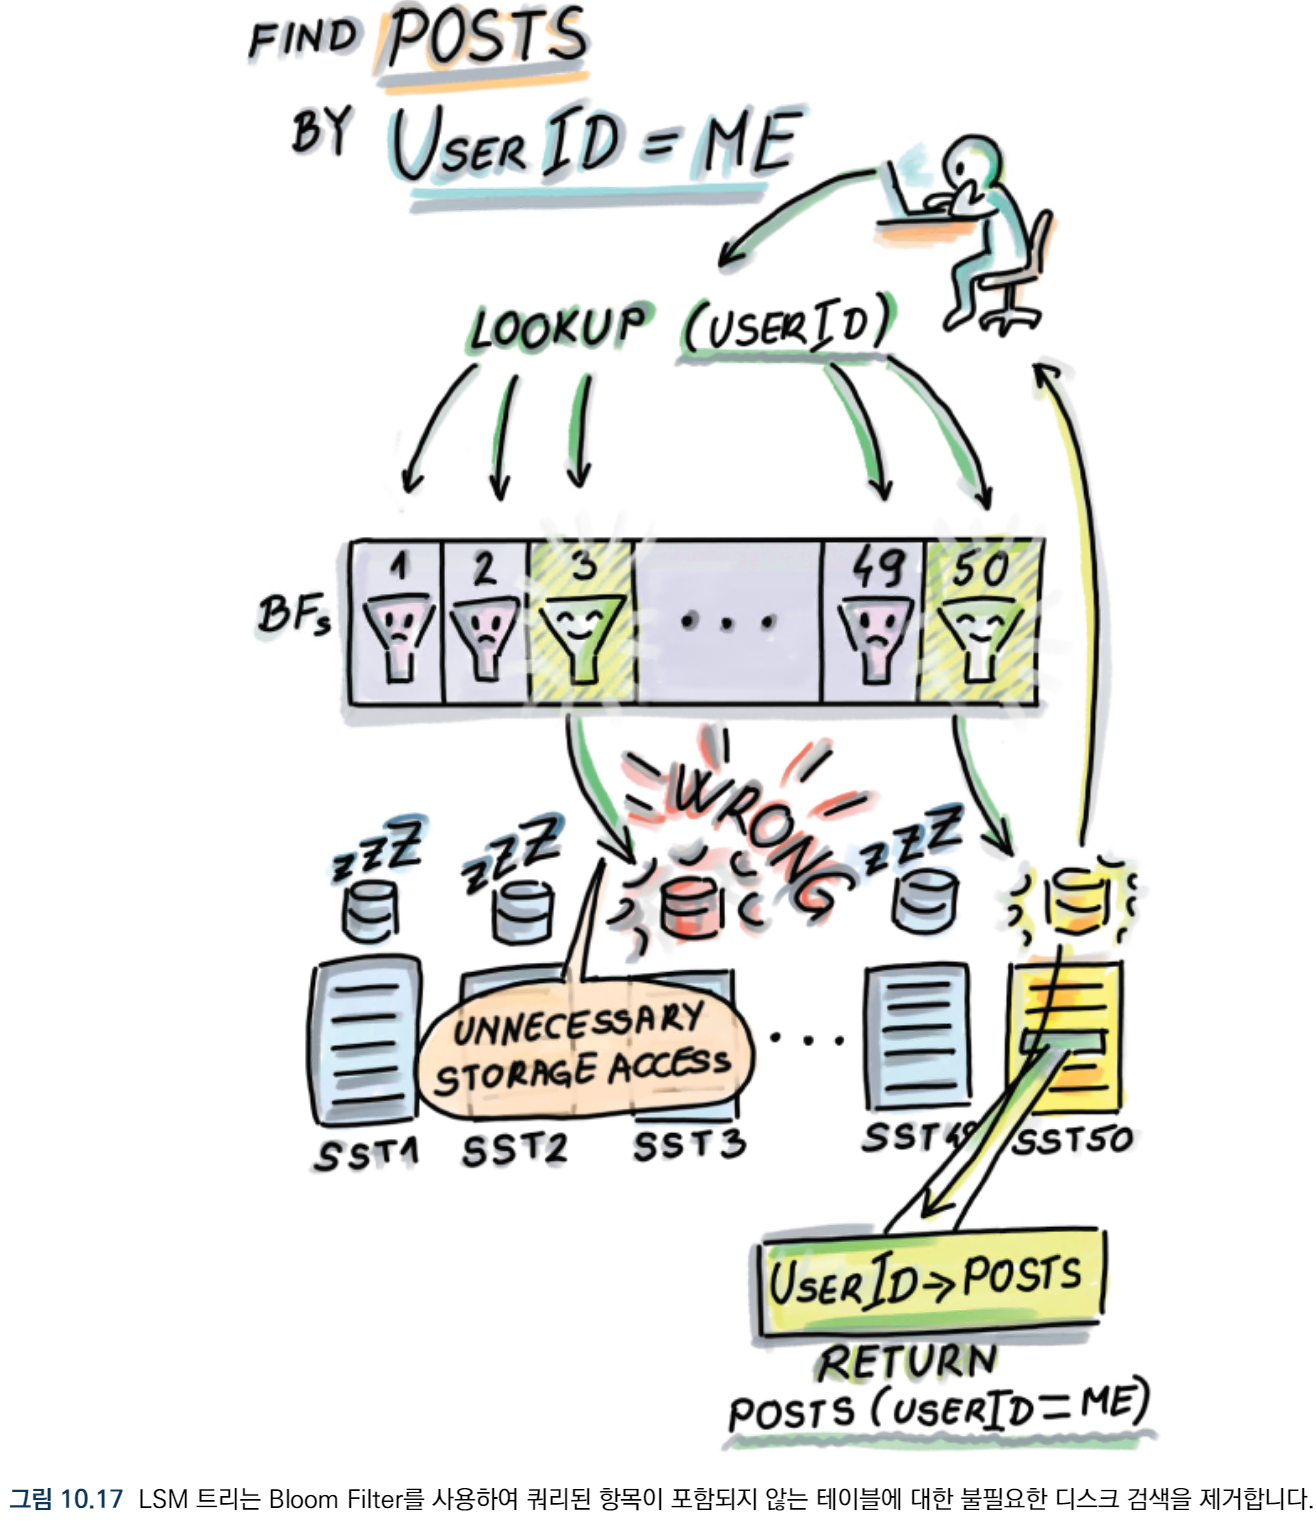 FIND POSTS
BY USER ID = ME
LOOKUP (USERID)
1 2 3 ... 49 50
BFs
WRONG
zzZ zzZ zzZ
UNNECESSARY
STORAGE ACCESS
...
SST1 SST2 SST3 SST49 SST50
USERID→POSTS
RETURN
POSTS (USERID=ME)
그림 10.17 LSM 트리는 Bloom Filter를 사용하여 쿼리된 항목이 포함되지 않는 테이블에 대한 불필요한 디스크 검색을 제거합니다.